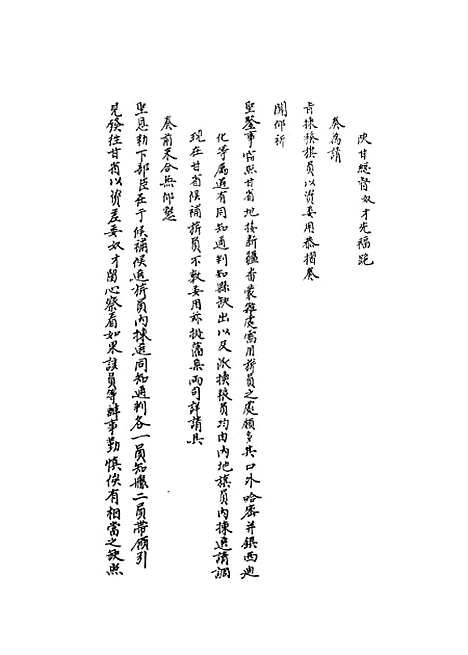 陕甘總督奴才先福跪
奏為請
旨揀發旗員以資委用恭摺奏
聞仰祈
聖鑒事竊照甘省地接新疆番蒙雜處需用旗員之處頗多其口外哈密并鎮西迪
化等屬遇有同知通判知縣缺出以及派換糧員均由內地旗員內揀選請調
現在甘省候補旗員不敷委用茲據藩臬兩司詳請具
奏前來合無仰懇
聖恩勅下部臣在于候補候選旗員內揀選同知通判各一員知縣二員帶領引
見發往甘省以資差委奴才留心察看如果該員等辦事勤慎俟有相當之缺照